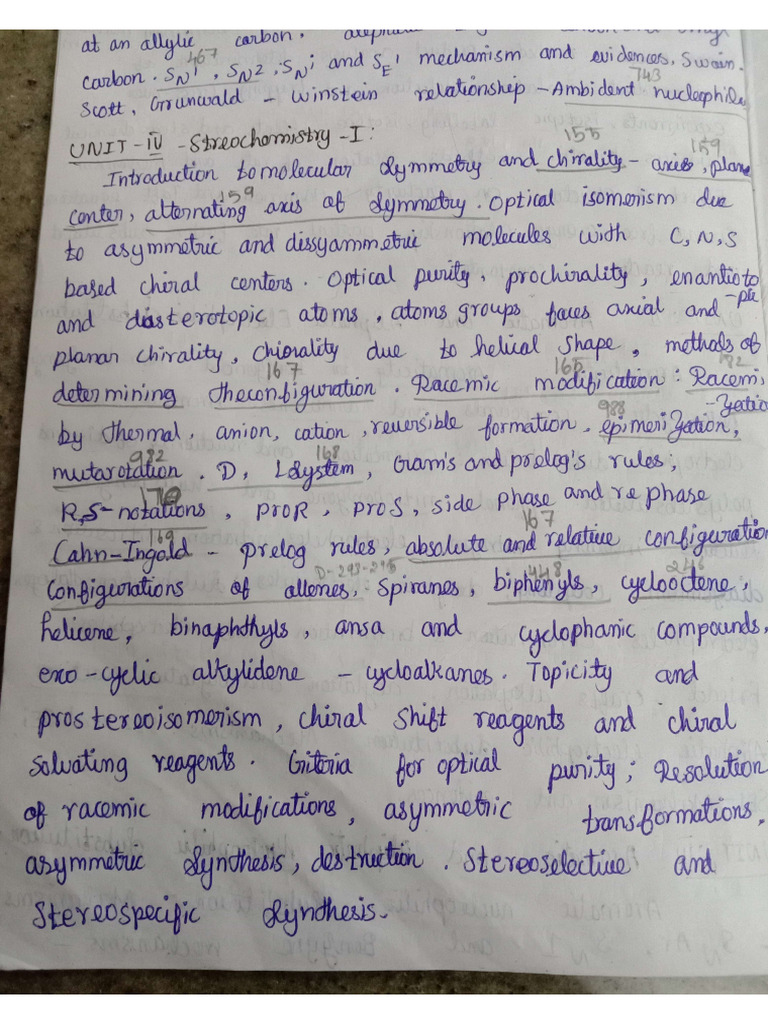 at an allylic carbon,
467
carbon. SN1, SN2, SNi and SE1 mechanism and evidences, Swain.
743
Scott, Grunwald - Winstein relationship - Ambident nucleophile
UNIT-IV - Streochemistry - I:
155 159
Introduction to molecular symmetry and chirality - axis, plane
159
center, alternating axis of symmetry. Optical isomerism due
to asymmetric and dissyammetric molecules with C, N, S
based chiral centers. Optical purity, prochirality, enantioto
-pic
and diasterotopic atoms, atoms groups faces axial and
planar chirality, chiorality due to helical shape, methods of
167 165 182
determining theconfiguration. Racemic modification: Racemi
-zation
by thermal, anion, cation, reversible formation, epimerization,
988
982 168
mutarotation. D, L system, Cram's and prelog's rules,
170
R,S-notations, proR, proS, side phase and re phase
169 167
Cahn-Ingold - prelog rules, absolute and relative configuration
D-293-295 448 246
configurations of allenes, spiranes, biphenyls, cyclooctene,
helicene, binaphthyls, ansa and cyclophanic compounds,
exo-cyclic alkylidene - cycloalkanes. Topicity and
prostereoisomerism, chiral shift reagents and chiral
solvating reagents. Criteria for optical purity; Resolution
of racemic modifications, asymmetric transformations,
asymmetric synthesis, destruction. Stereoselective and
Stereospecific synthesis.